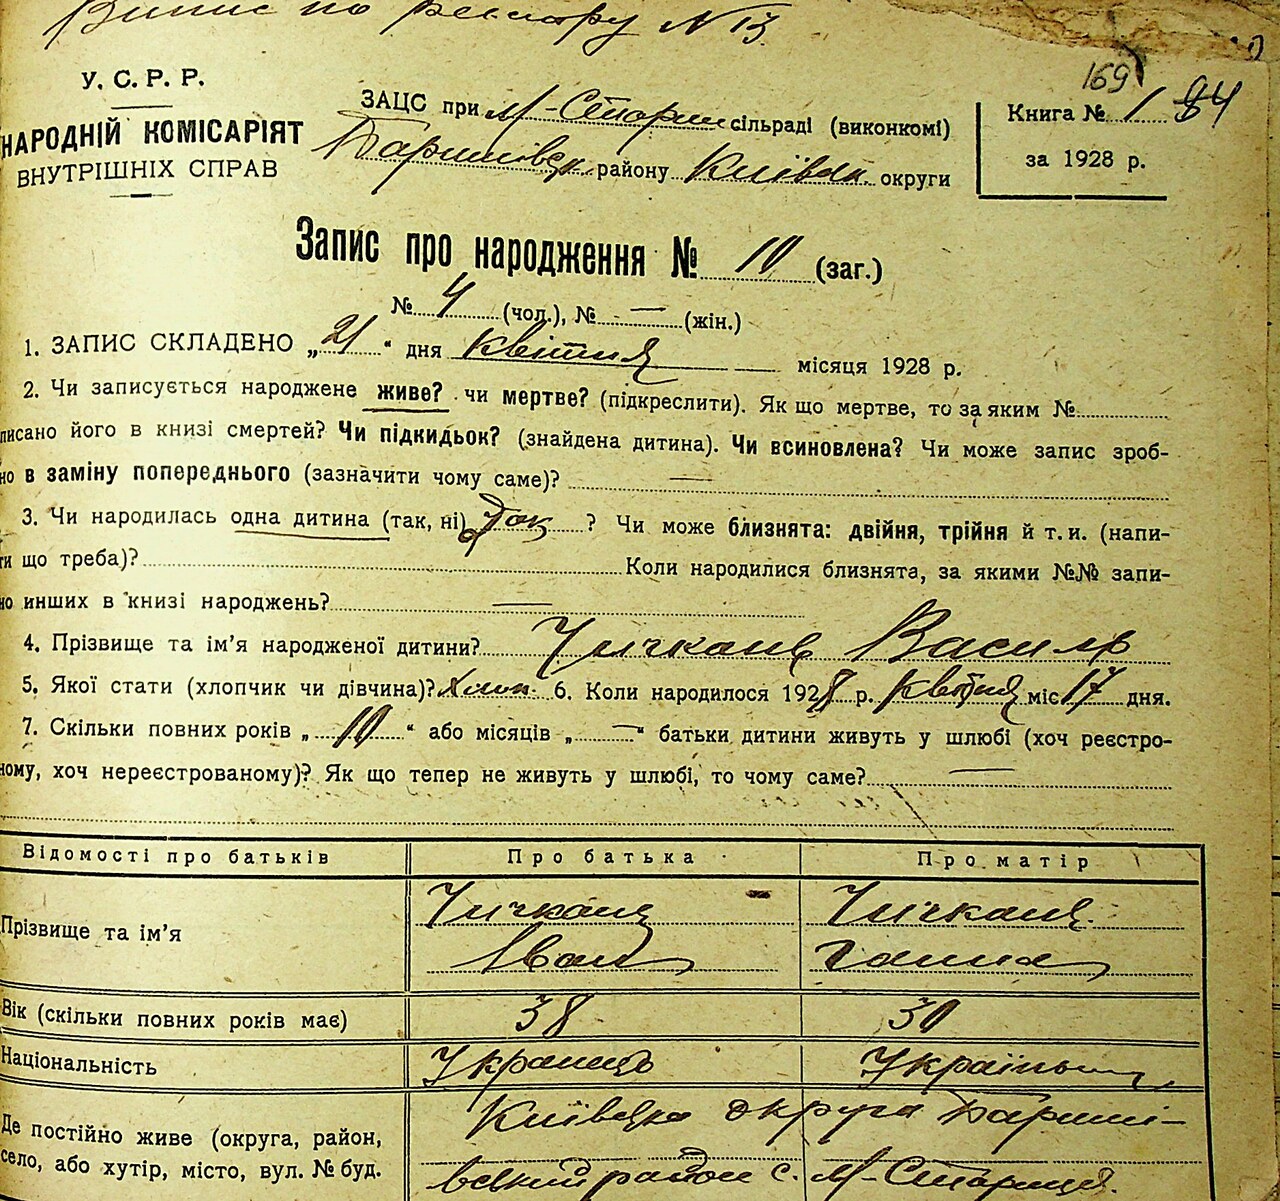 Випис по реєстру № 13.
169
У. С. Р. Р.
НАРОДНІЙ КОМІСАРІЯТ
ВНУТРІШНІХ СПРАВ
ЗАЦС при М-Стариц сільраді (виконкомі)
Баришівськ. району Київськ. округи
Книга № 1 84
за 1928 р.
Запис про народження № 10 (заг.)
№ 4 (чол.), № — (жін.)
1. ЗАПИС СКЛАДЕНО „21“ дня квітня місяця 1928 р.
2. Чи записується народжене живе? чи мертве? (підкреслити). Як що мертве, то за яким №
писано його в книзі смертей? Чи підкидьок? (знайдена дитина). Чи всиновлена? Чи може запис зроб-
но в заміну попереднього (зазначити чому саме)? —
3. Чи народилась одна дитина (так, ні) Так ? Чи може близнята: двійня, трійня й т. и. (напи-
ти що треба)? Коли народилися близнята, за якими №№ запи-
но инших в книзі народжень? —
4. Прізвище та ім’я народженої дитини? Чичкань Василь
5. Якої стати (хлопчик чи дівчина)? Хлоп. 6. Коли народилося 1928 р. Квітня міс 17 дня.
7. Скільки повних років „10“ або місяців „—“ батьки дитини живуть у шлюбі (хоч реєстро-
ному, хоч нереєстрованому)? Як що тепер не живуть у шлюбі, то чому саме? —
Відомості про батьків Про батька Про матір
Прізвище та ім’я Чичкань Чичкань
Іван Ганна
Вік (скільки повних років має) 38 30
Національність Українець Українка
Де постійно живе (округа, район, Київська округа Бариші-
село, або хутір, місто, вул. № буд. вський район с. М-Стариця.